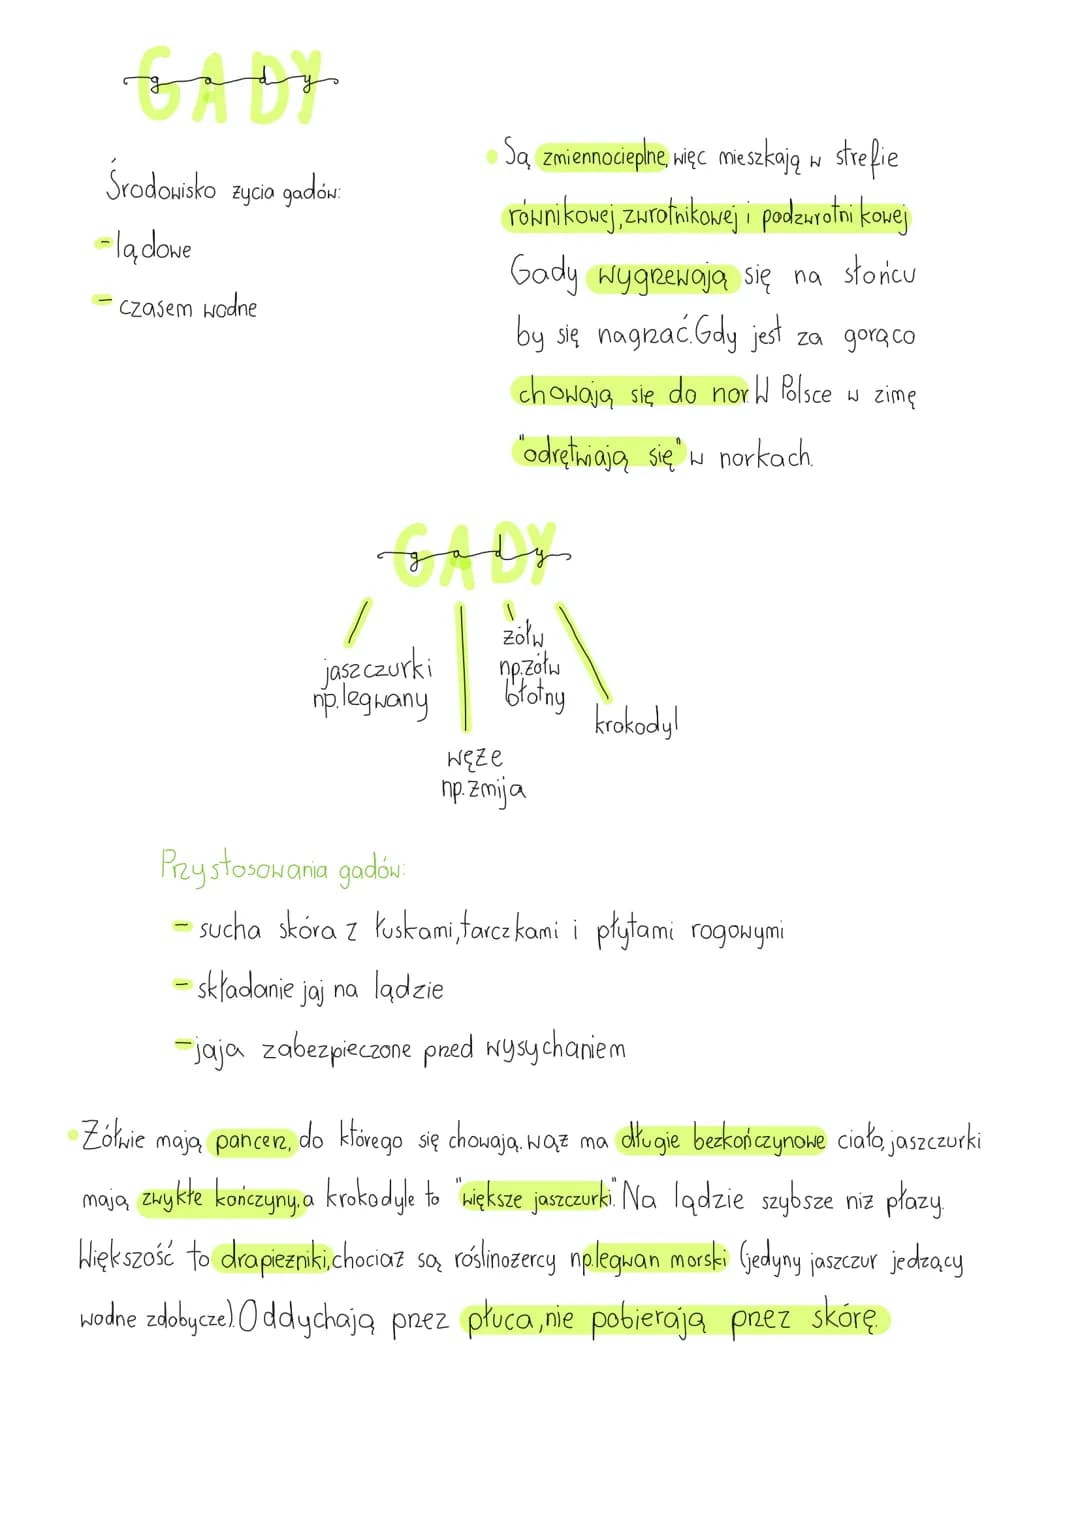 GADY
gady
Środowisko życia gadów:
-lądowe
- czasem wodne
• Są zmiennocieplne, więc mieszkają w strefie
równikowej, zwrotnikowej i podzwrotnikowej
Gady wygrzewają się na słońcu
by się nagrzać. Gdy jest za gorąco
chowają się do nor. W Polsce w zimę
"odrętwiają się" w norkach.
GADY
gady
jaszczurki
np. legwany
węże
np. żmija
żółw
np. żółw
błotny
krokodyl
Przystosowania gadów:
- sucha skóra z łuskami, tarczkami i płytami rogowymi
- składanie jaj na lądzie
- jaja zabezpieczone przed wysychaniem
• Żółwie mają pancerz, do którego się chowają. wąż ma długie bezkończynowe ciało, jaszczurki
mają zwykłe kończyny, a krokodyle to "większe jaszczurki". Na lądzie szybsze niż płazy.
Większość to drapieżniki, chociaż są roślinożercy np. legwan morski (jedyny jaszczur jedzący
wodne zdobycze). Oddychają przez płuca, nie pobierają przez skórę.